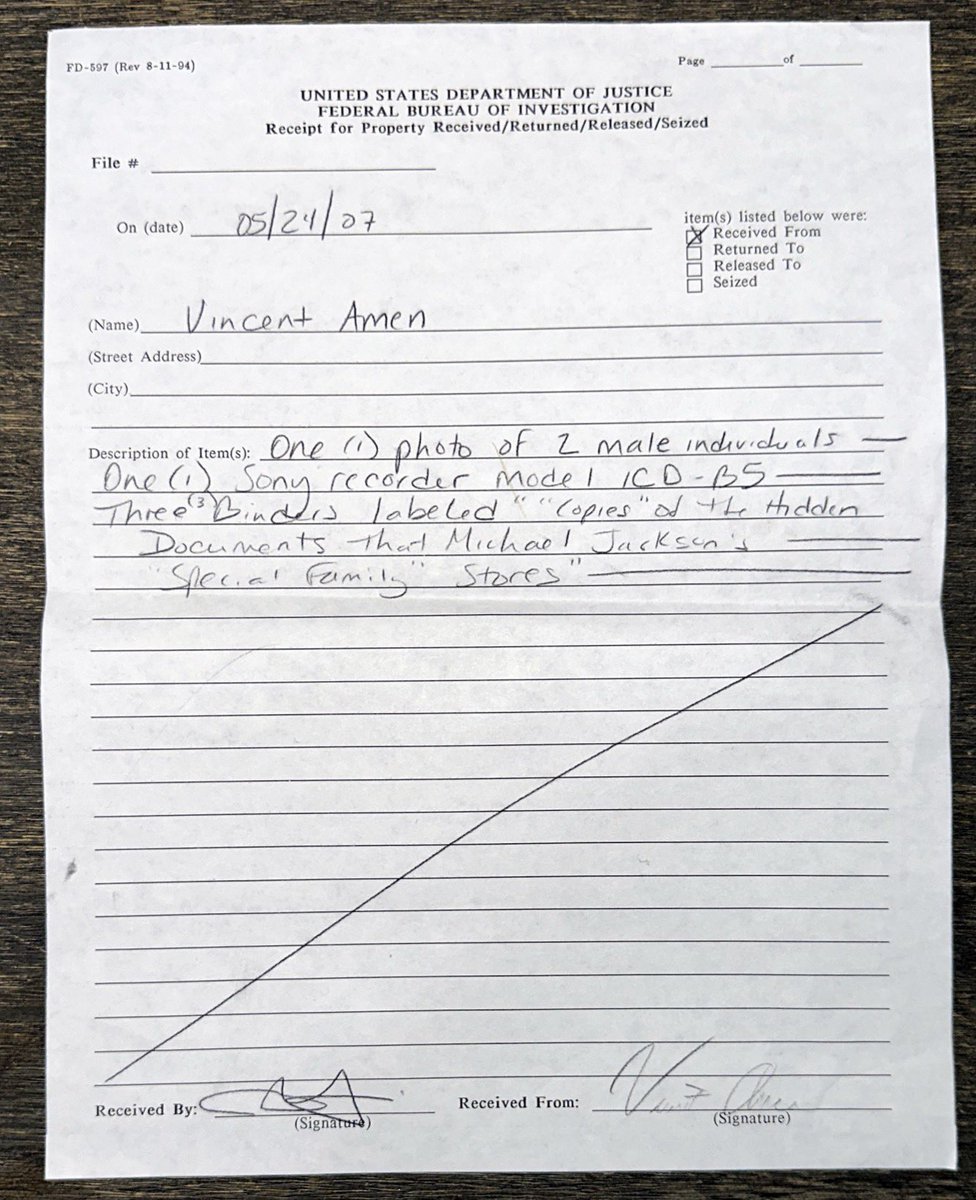 FD-597 (Rev 8-11-94)
Page ________of ________
UNITED STATES DEPARTMENT OF JUSTICE
FEDERAL BUREAU OF INVESTIGATION
Receipt for Property Received/Returned/Released/Seized
File #
On (date) 05/24/07
item(s) listed below were:
Received From
Returned To
Released To
Seized
(Name) Vincent Amen
(Street Address)
(City)
Description of Item(s): One (1) photo of 2 male individuals
One (1) Sony recorder model ICD-B5
Three (3) Binders labeled " "Copies" of the Hidden
Documents that Michael Jackson's
"Special Family" Stores"
Received By:
Received From:
(Signature)
(Signature)